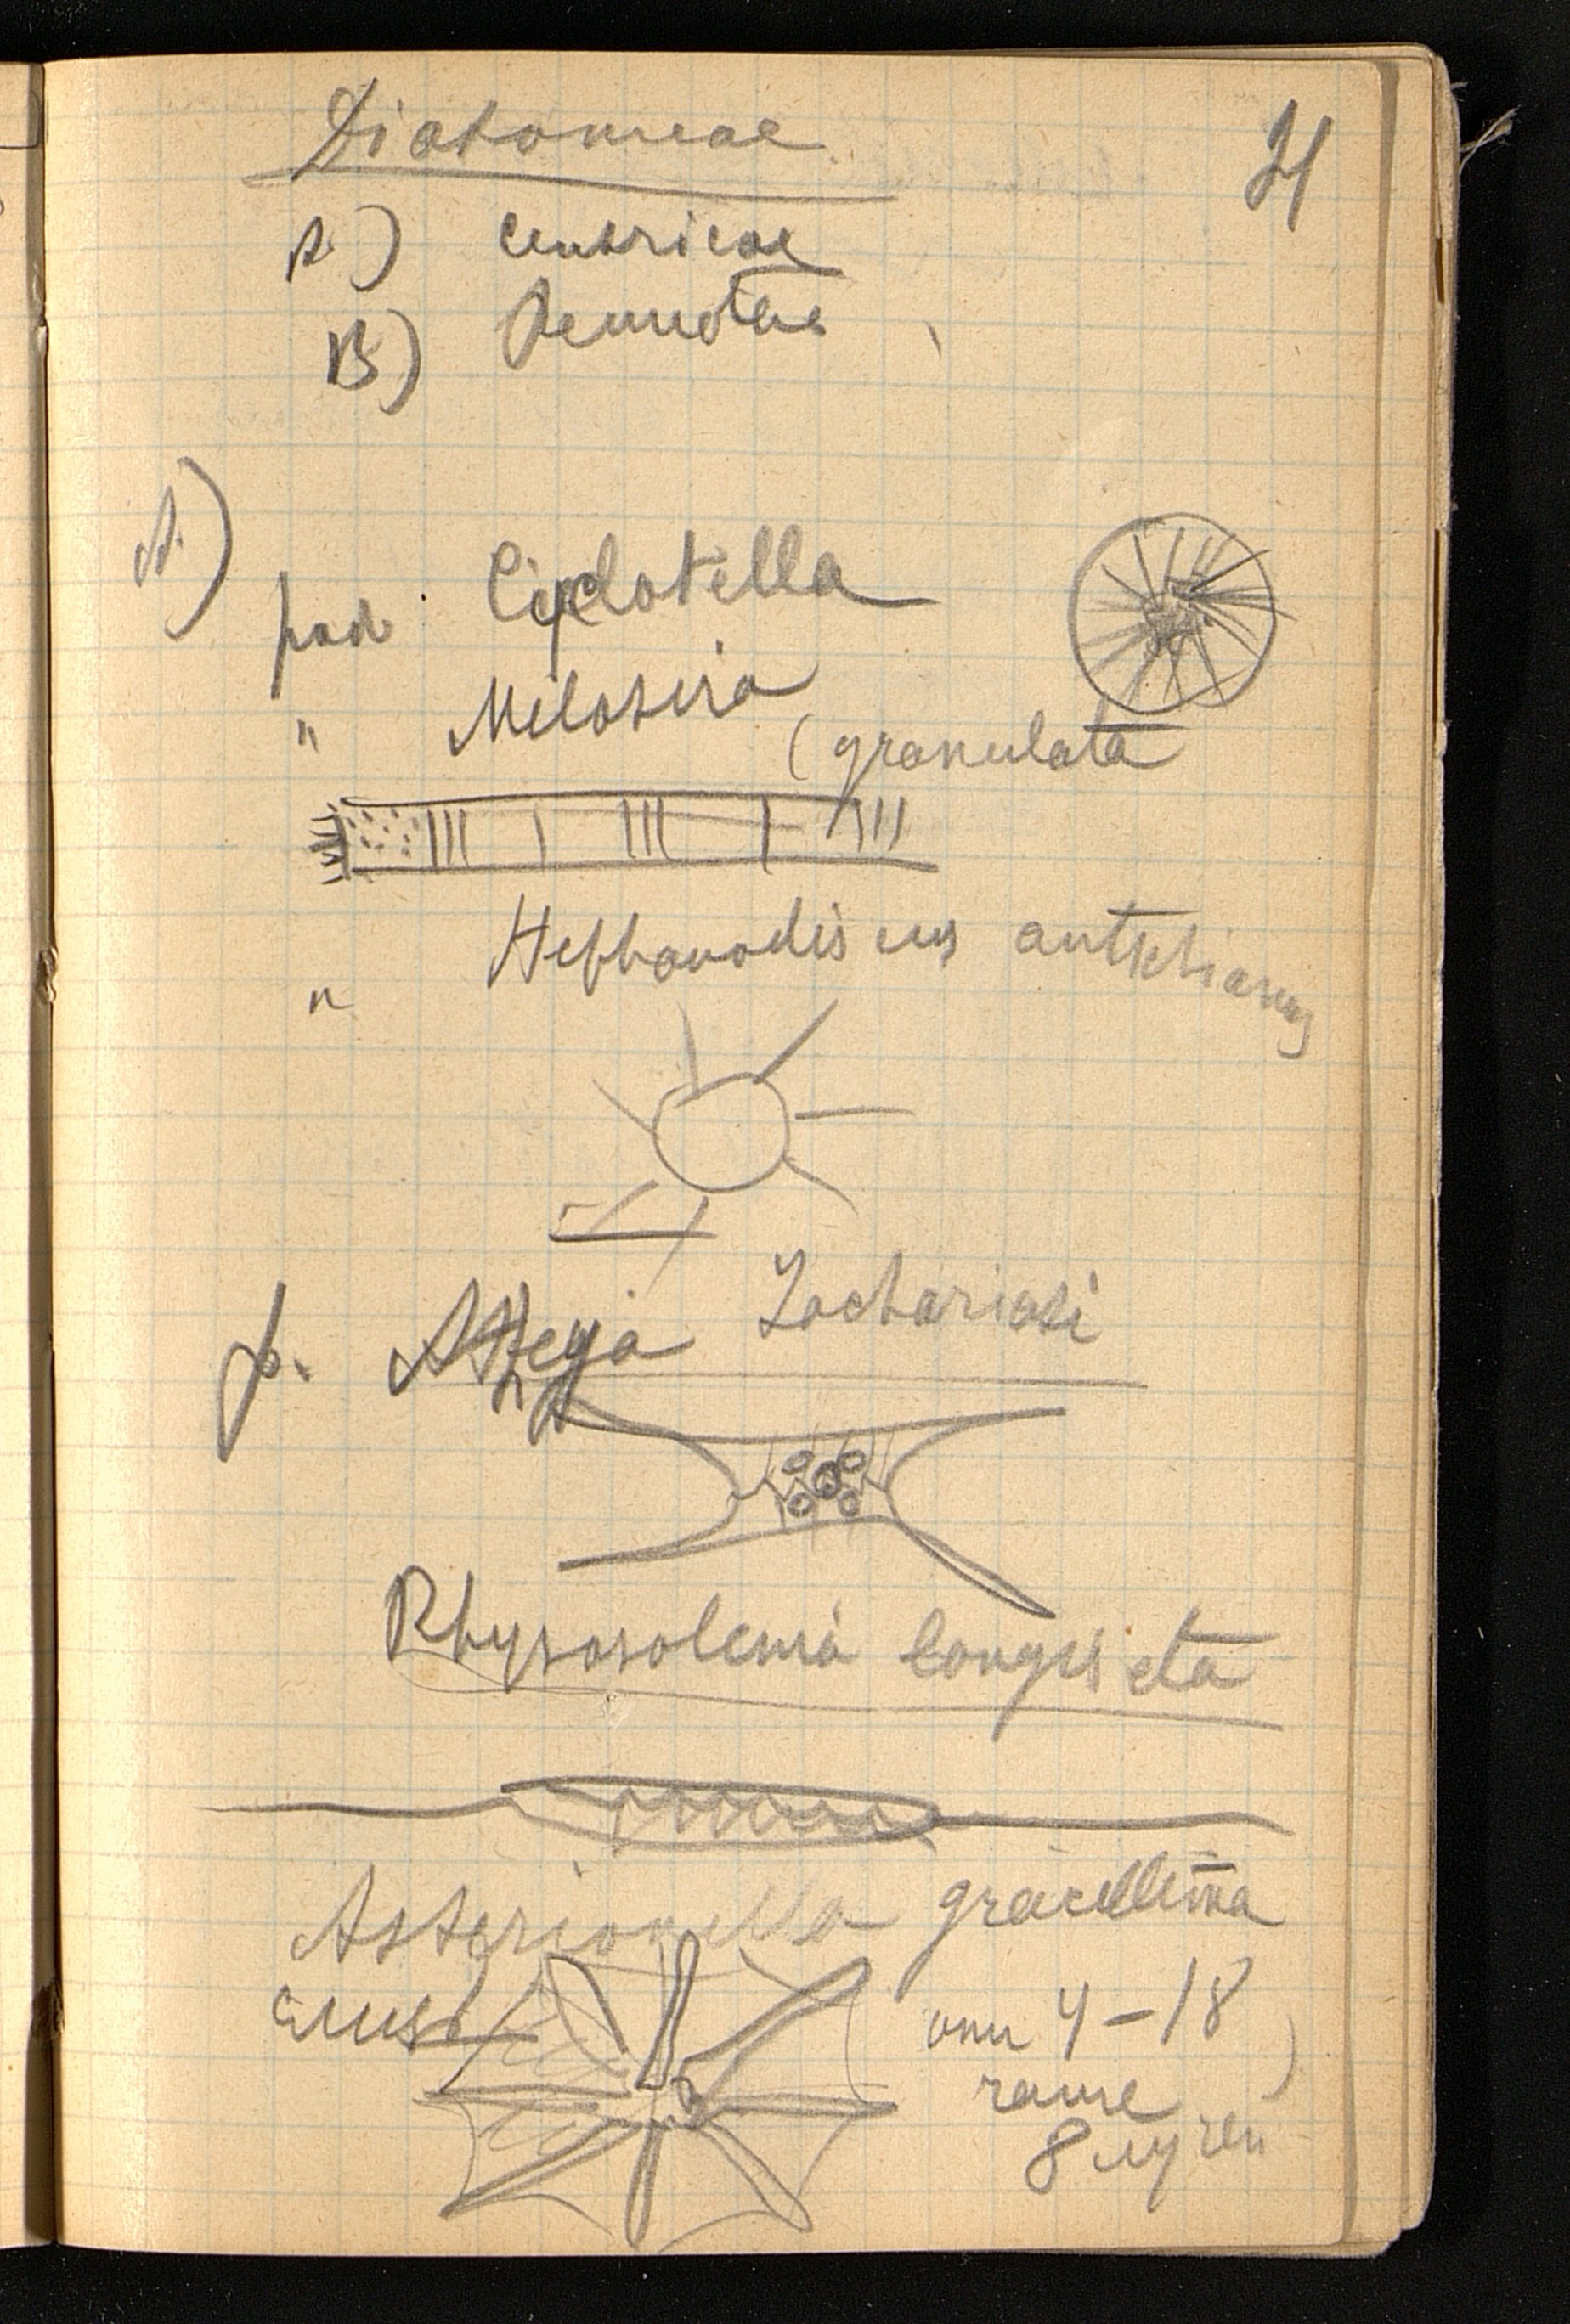 Diatomeae
21
A) Centricae
B) Pennatae
A)
род. Cyclotella
" Melosira
(granulata
" Stephanodiscus
р. Atteya Zachariasi
Rhysosolenia longiseta
Asterionella gracillima
слизь
они 4-18
чаще
8 лучей)